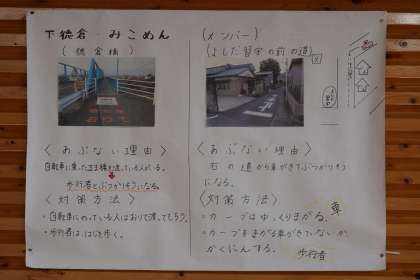 下徳倉・みこめん
(徳倉橋)
<あぶない理由>
自転車に乗ったまま橋を渡っている人がいる。
歩行者とぶつかりそうになる。
<対策方法>
・自転車にのっている人はおりて渡ってもらう。
・歩行者は、はじを歩く。
(メンバー)
(よしだ習字の前の道)
<あぶない理由>
右の道から車がきてぶつかりそう
になる。
<対策方法>
・カーブはゆっくりまがる。車
・カーブをまがる車がきていないか
かくにんする。歩行者